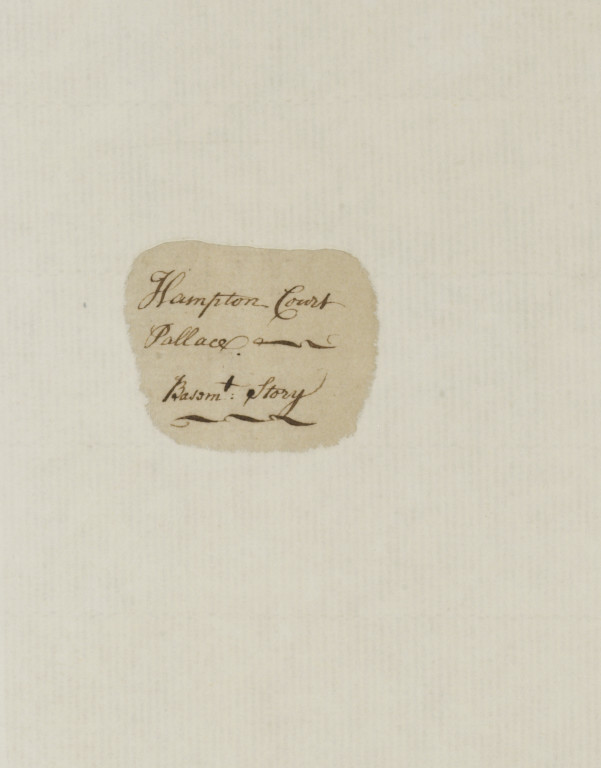 Hampton Court
Pallace
Basemt: Story